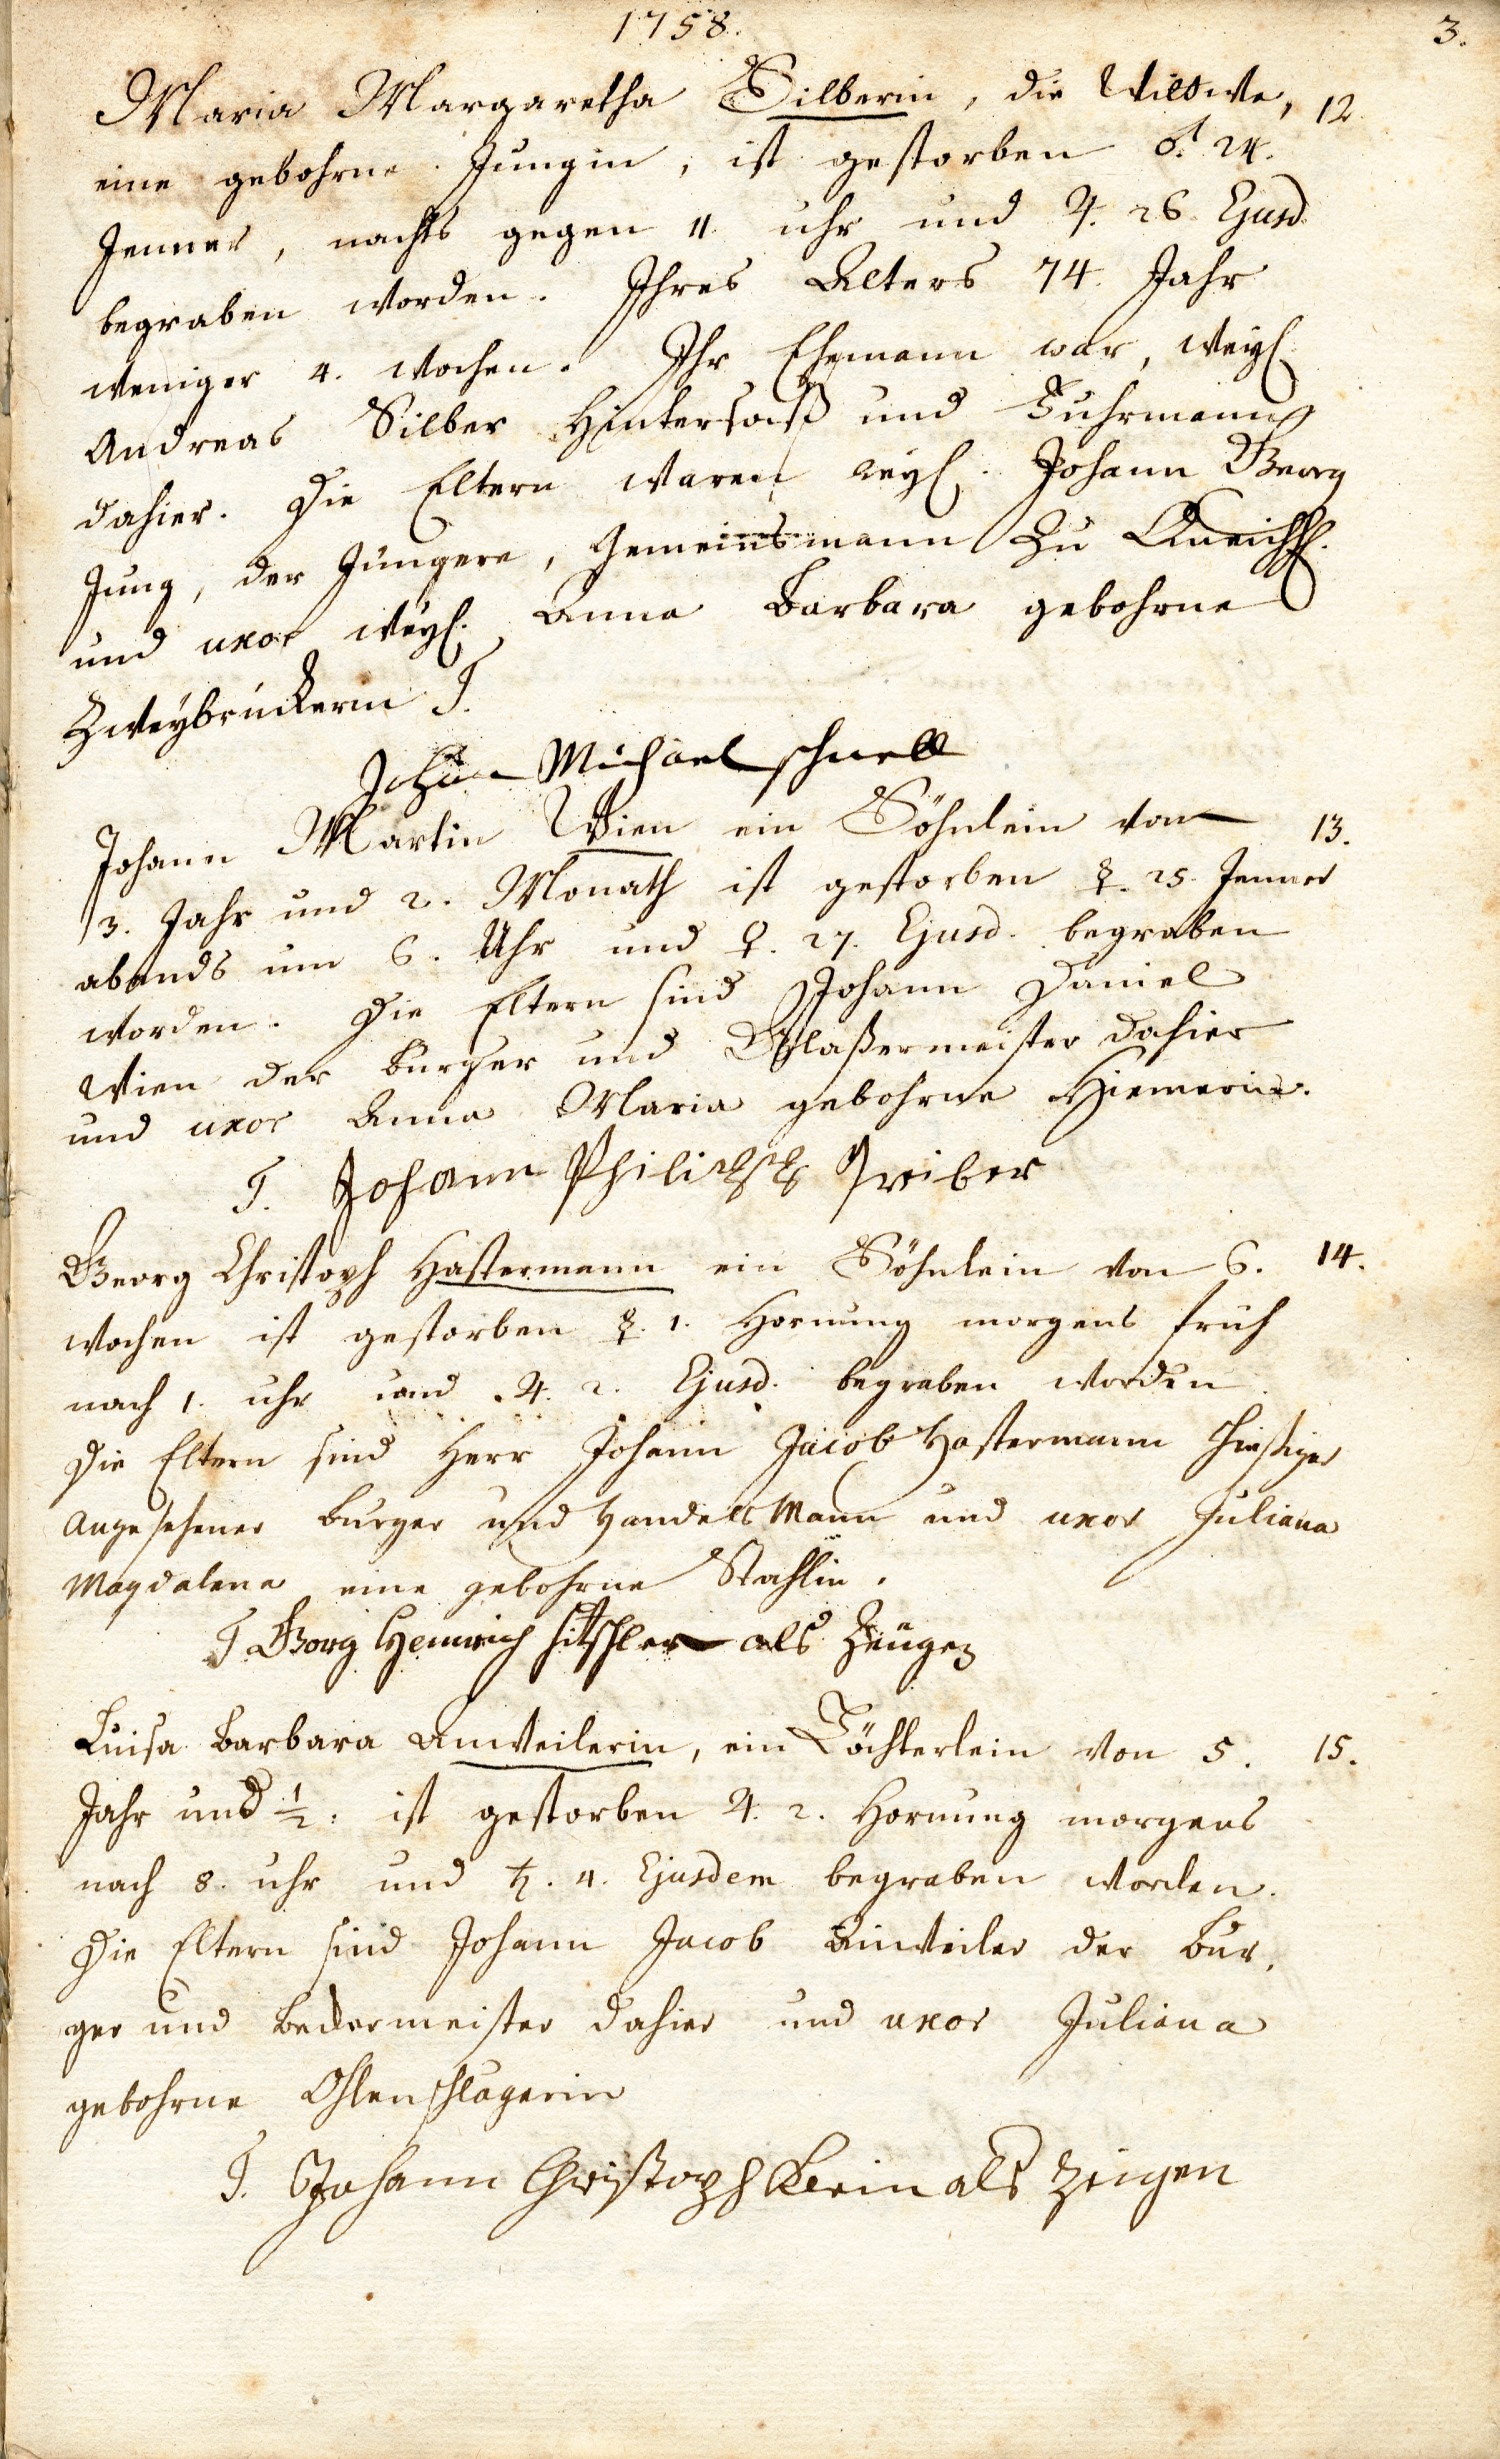 1758.
3.
Maria Margaretha Silberin, die Wittwe, 12.
eine gebohrne Jungin, ist gestorben ♂. 24.
Jenner, nachts gegen 11. uhr und ♃. 26. Ejusd.
begraben worden. Ihres Alters 74. Jahr
weniger 4. wochen. Ihr Ehemann war, weyl.
Andreas Silber Hintersaß und Fuhrmann
dahier. Die Eltern waren weyl. Johann Georg
Jung, der Jüngere, Gemeinsmann zu
und uxor weyl. Anna Barbara gebohrne
Zweybrückerin T.
Johan Michael schnell
Johann Martin Wien ein Söhnlein von 13.
3. Jahr und 2. Monath ist gestorben ☿. 25. Jenner
abends um 6. Uhr und ♀. 27. Ejusd. begraben
worden. Die Eltern sind Johann Daniel
Wien der burger und Glaßermeister dahier
und uxor Anna Maria gebohrne Hiemerin.
T. Johann Philipp Treiber
Georg Christoph Hastermann ein Söhnlein von 6. 14.
wochen ist gestorben ☿. 1. Hornung morgens früh
nach 1. uhr und ♃. 2. Ejusd. begraben worden.
Die Eltern sind Herr Johann Jacob Hastermann hiesiger
angesehener burger und HandelsMann und uxor Juliana
Magdalena eine gebohrne Stahlin.
T Georg Henrich Hitschler als Zeugen
Luisa Barbara Anweilerin, ein Töchterlein von 5. 15.
Jahr und ½. ist gestorben ♃. 2. Hornung morgens
nach 8. uhr und ♄. 4. Ejusdem begraben worden.
Die Eltern sind Johann Jacob Anweiler der bur,
ger und beckermeister dahier und uxor Juliana
gebohrne Ohlenschlagerin
T. Johann Christoph als Zeigen